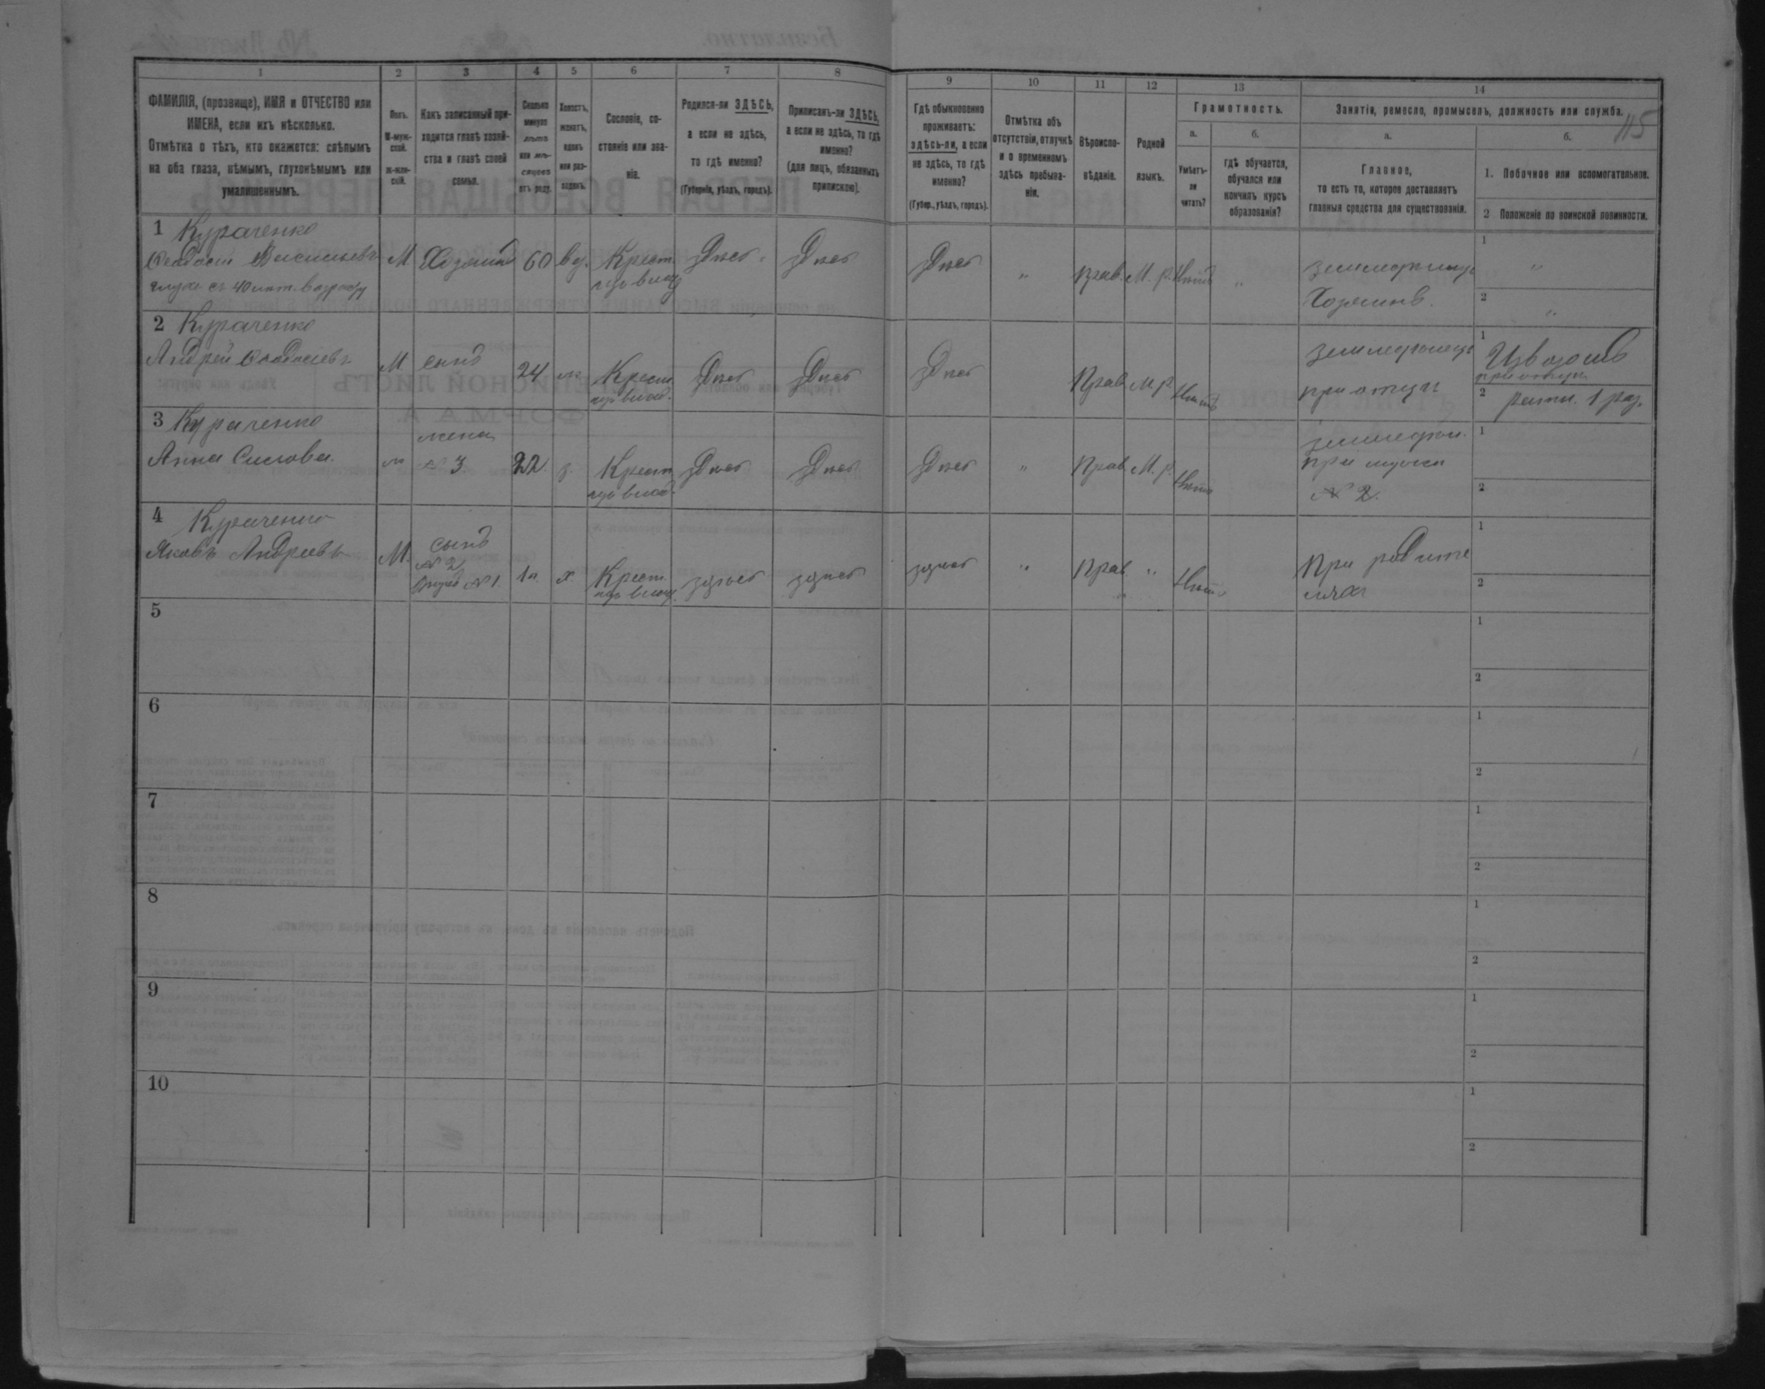 115
1
2
3
4
5
6
7
8
9
10
11
12
13
14
ФАМИЛІЯ, (прозвище), ИМЯ и ОТЧЕСТВО или
ИМЕНА, если ихъ нѣсколько.
Отмѣтка о тѣхъ, кто окажется: слѣпымъ
на оба глаза, нѣмымъ, глухонѣмымъ или
умалишеннымъ.
Полъ.
М-муж-
ской.
Ж-жен-
скій.
Какъ записанный при-
ходится главѣ хозяй-
ства и главѣ своей
семьи.
Сколько
минуло
лѣтъ
или мѣ-
сяцевъ
отъ роду.
Холостъ,
женатъ,
вдовъ
или раз-
веденъ.
Сословіе, со-
стояніе или зва-
ніе.
Родился-ли ЗДѢСЬ,
а если не здѣсь,
то гдѣ именно?
(Губернія, уѣздъ, городъ).
Приписанъ-ли ЗДѢСЬ,
а если не здѣсь, то гдѣ
именно?
(для лицъ, обязанныхъ
припискою).
Гдѣ обыкновенно
проживаетъ:
здѣсь-ли, а если
не здѣсь, то гдѣ
именно?
(Губер., уѣздъ, городъ).
Отмѣтка объ
отсутствіи, отлучкѣ
и о временномъ
здѣсь пребыва-
ніи.
Вѣроиспо-
вѣданіе.
Родной
языкъ.
Грамотность.
а.
Умѣетъ-
ли
читать?
б.
гдѣ обучается,
обучался или
кончилъ курсъ
образованія?
Занятіе, ремесло, промыселъ, должность или служба.
а.
Главное,
то есть то, которое доставляетъ
главныя средства для существованія.
б.
1. Побочное или вспомогательное.
2 Положеніе по воинской повинности.
1 Кураченко
Феодосій Васильевъ
глухъ съ 40 лѣт. возрасту
М Хозяинъ 60 вд. Крест.
изъ влад
Здѣсь Здѣсь Здѣсь " Прав. М. р. Нѣтъ "
земледѣлецъ
Хозяинъ.
1 "
2 "
2 Кураченко
Андрей Феодосіевъ
М сынъ 24 ж Крест
изъ влад.
Здѣсь Здѣсь Здѣсь Прав М. р. Нѣтъ
земледѣлецъ
при отцѣ
1 Извозъ
при отцѣ
2 ратн. 1 раз.
3 Кураченко
Анна Силова
ж жена
№ 3 22 з Крест
изъ влад.
Здѣсь Здѣсь Здѣсь " Прав М. р. Нѣтъ
земледѣл.
при мужѣ
№ 2.
1
2
4 Кураченко
Яковъ Андреевъ
М. сынъ
№ 2
внукъ №1. 1м х Крест
изъ влад.
здѣсь здѣсь здѣсь " Прав " Нѣтъ
При родите
ляхъ
1
2
5
1
2
6
1
2
7
1
2
8
1
2
9
1
2
10
1
2